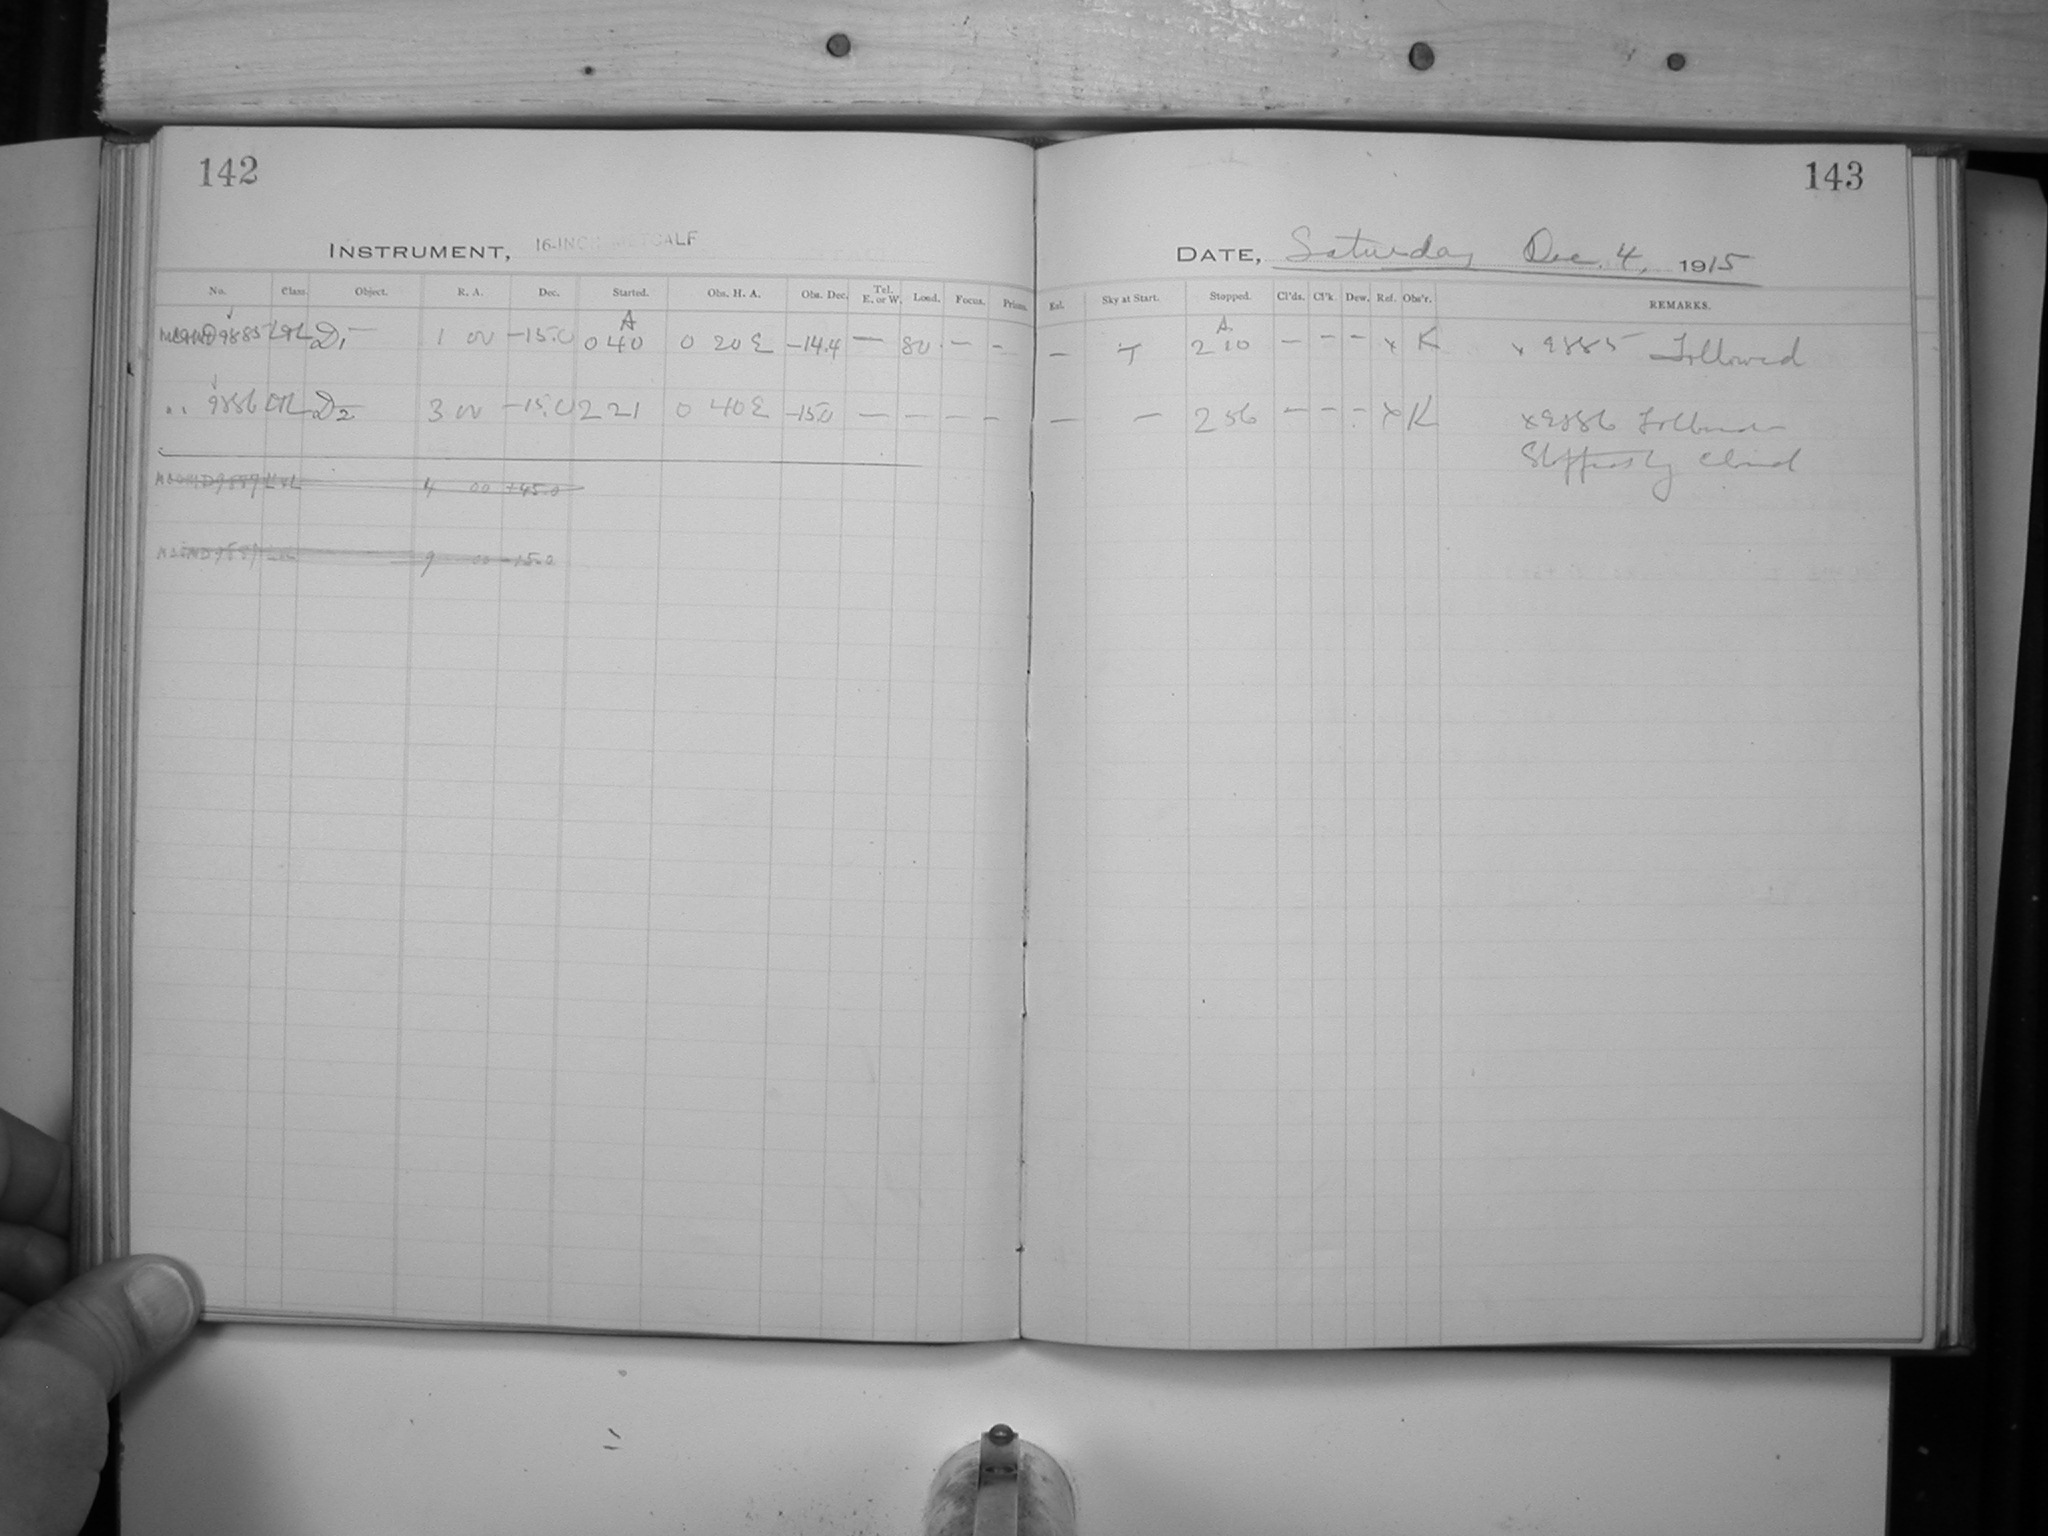 142
INSTRUMENT, 16-INCH METCALF
No. Class. Object. R. A. Dec. Started. Obs. H. A. Obs. Dec. Tel. E. or W. Loud. Focus. Prism.
A
9885 D1 1 00 -15.0 0 40 0 20 E -14.4 — 80 - -
" 9886 D2 3 00 -15.0 2 21 0 40 E -15.0 — — — —
4 00 +45.0
9 00 -15.0
143
DATE, Saturday Dec. 4, 1915
Sky at Start. Stopped. Cl'ds. Cl'k. Dew. Ref. Obs'r. REMARKS.
A.
— 2 10 — - — x K x 9885 Followed
— — 2 56 — - - x K x 9886 Followed
Stopped by cloud